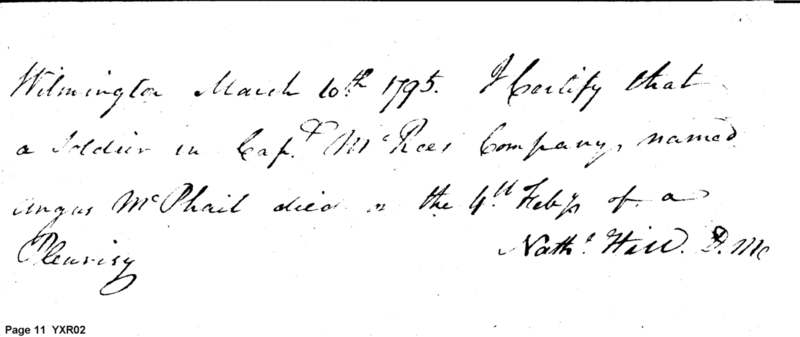 Wilmington March 10th 1795. I Certify that
a Soldier in Capt. McRees Company, named
angus McPhail died on the 4th Feby of a
Pleurisy
Nathl. Hill. D. Mc
Page 11 YXR02